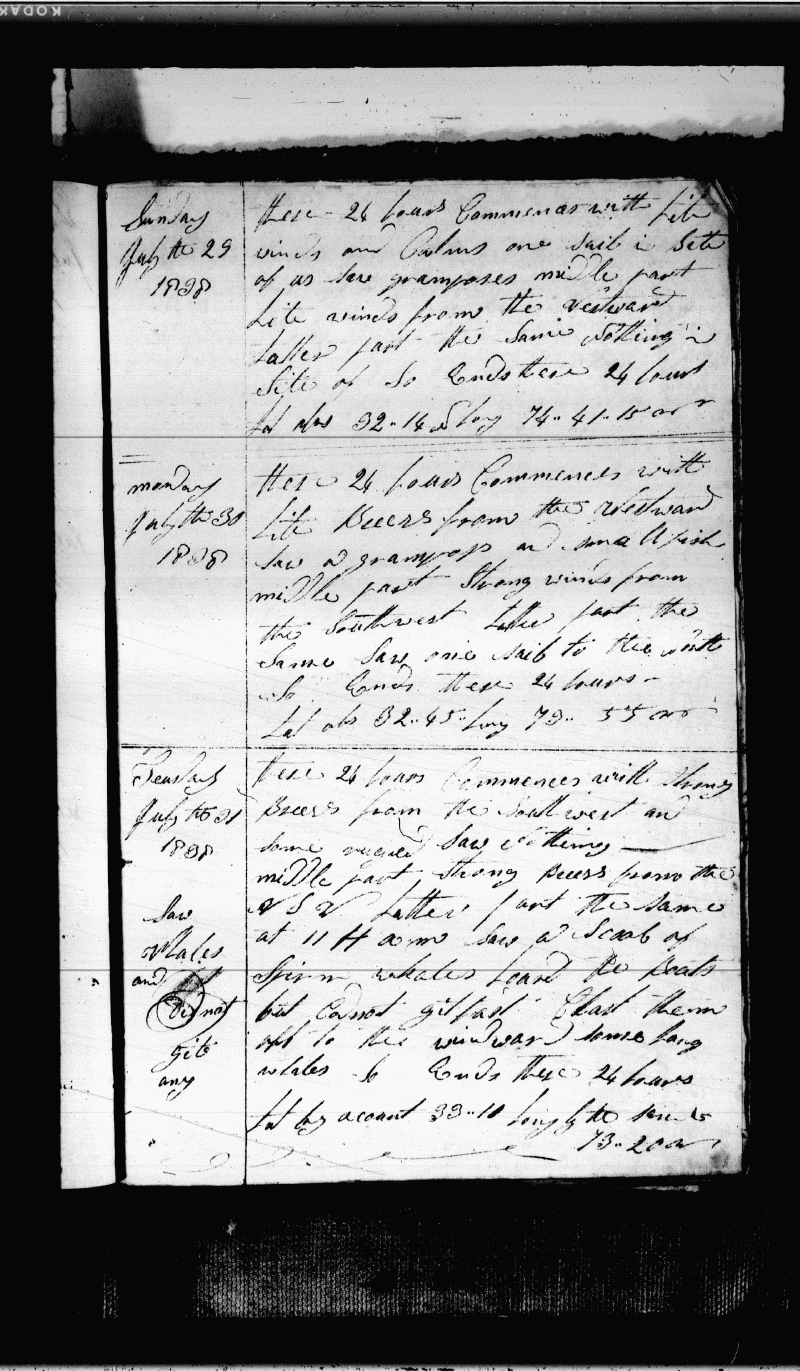 KODAK
Sunday
July the 29
1838
these 24 hours Commences with Lite
winds and Calms one sail in Site
of us saw grampuses middle part
Lite winds from the Westward
Latter part the Same Nothing in
Site of So Ends these 24 hours
Lat obs 32..14 Long 74..41..15
monday
July the 30
1838
these 24 hours Commences with
Lite Breers from the Westward
Saw a grampos and small fish
middle part Strong winds from
the Southwest Latter part the
Same Saw one sail to the
So Ends these 24 hours
Lat obs 32..45 Long 73.. 55
Teusday
July the 31
1838
Saw
Whales
and
Did not
gite
any
these 24 hours Commences with strong
Breers from the Southwest and
some rugged Saw Nothing
middle part strong Breers from the
W S W Latter part the same
at 11 H am Saw a Scool of
Spirm whales the Boats
but Cod not git fast Chast them
off to the windward some long
whales So Ends these 24 hours
Lat by acount 33..10 Long by the
73..20